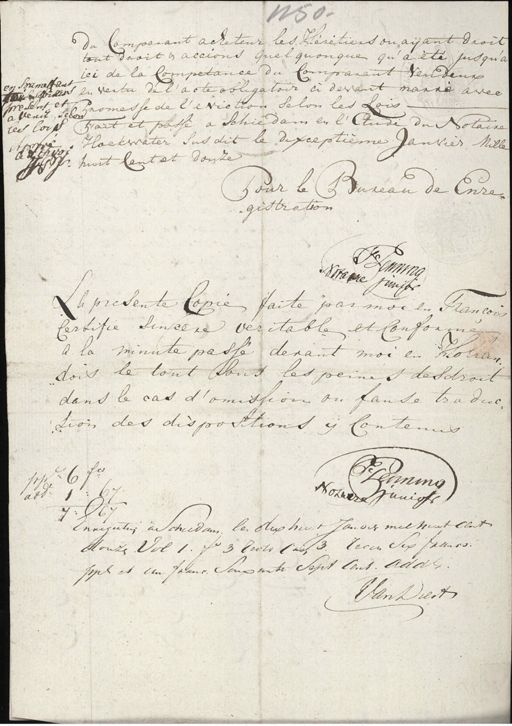 N 50.
Du Comparant acheteur les Héretiers ou ayant droit
tout droit & accions quelquonque qu'a été jusqu'a
ici de la Competance du Comparant Vendeur
en vertu de l'acte obligatoir ci devant narré avec
Promesse de l'eviction Selon les Loix
Fait et passé a Schiedam en l'Etude du Notaire
Susdit le dixseptieme Janvier Mille
huit Cent et douze
en Soumettant
presens et
a venir selon
les loix
Approuvé
Pour le Bureau de Enre-
gistration
Notaire junior
La presente Copie faite par moi en François
Certifié Sincere veritable et Conforme
a la minute passé devant moi en Hollan
dois le tout Sous les peines de droit
dans le cas d'omission ou fause traduc
tion des dispositions y Contenus
Notaire junior
6 fcs
add. 1 - 67
7 - 67
Enregistré a Schiedam le dix huit Janvier mil huit cent
douze Vol 1. fo 3 Recto Case 3 Recu Six francs
ppl et un franc Soixante Sept Cent. addel.
Van Diest